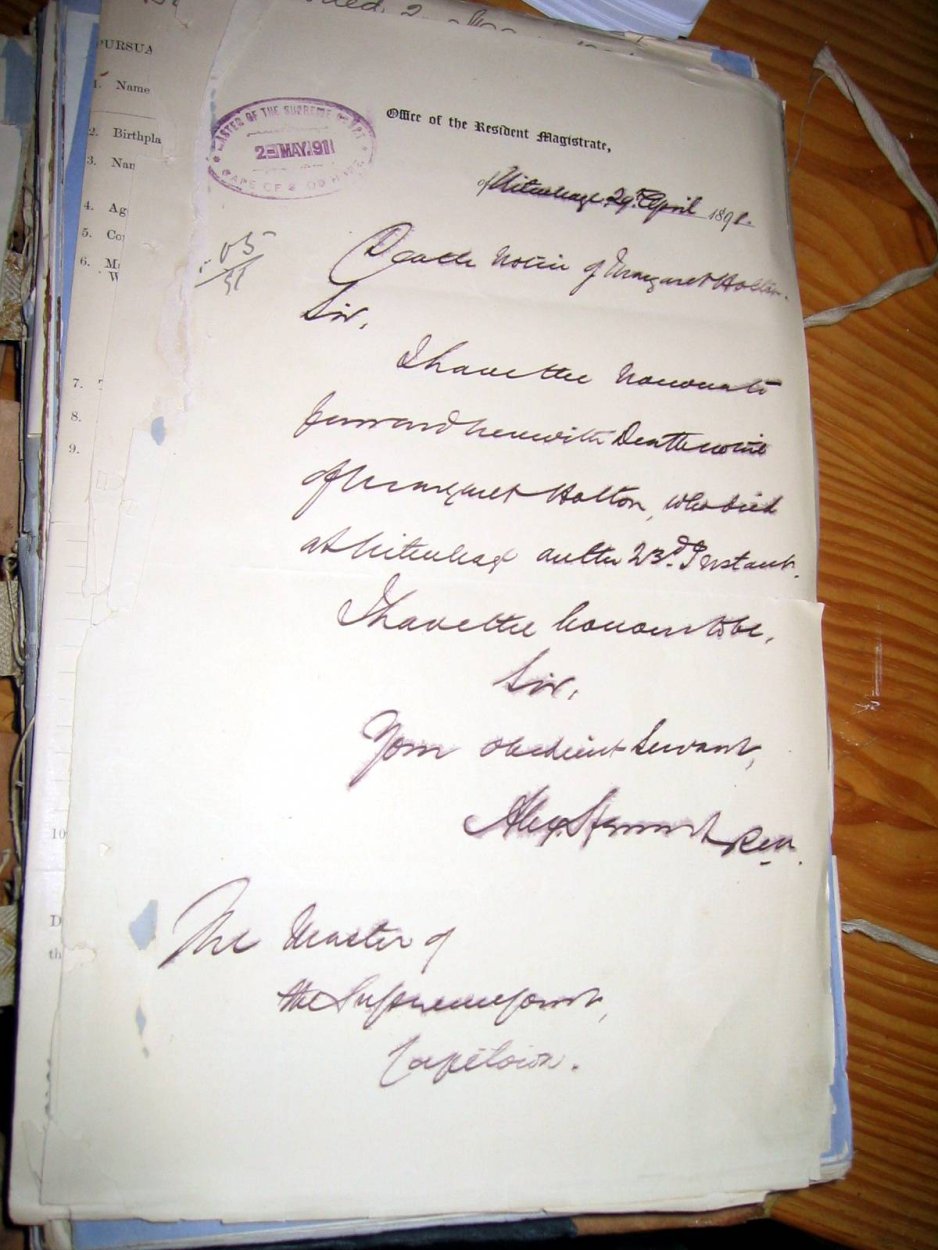 PURSUA
1. Name
2. Birthpla
3. Nam
4. Ag
5. Co
6. M
W
7.
8.
9.
10
D
th
MASTER OF THE SUPREME COURT
2 MAY.91
CAPE OF GOOD HOPE
Office of the Resident Magistrate,
of Uitenhage 29th April 1891.
Death Notice of Margaret Holton.
Sir,
I have the Honour to
forward herewith Death notice
of Margaret Holton, who died
at Uitenhage on the 23rd Instant.
I have the honour to be,
Sir,
Your obedient Servant,
Alex Stewart R.M.
The Master of
the Supreme Court,
Capetown.